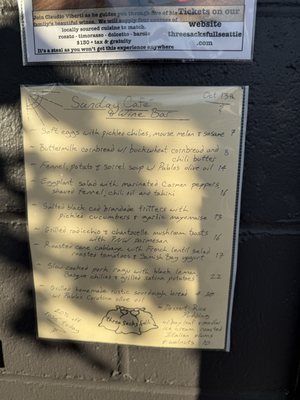 Join Claudio Viberti as he guides you through five of his
family's beautiful wines. We will supply four courses of
locally sourced cuisine to match.
rosato · timorasso · dolcetto · barolo
$150 + tax & gratuity
It's a steal as you won't get this experience anywhere
Tickets on our
website
threesacksfullseattle
.com
Oct 13th
Sunday Cafe
& Wine Bar
Soft eggs with pickled chilies, mouse melon & sesame 7
Buttermilk cornbread w/ buckwheat cornbread and 8
chili butter
Fennel, potato & sorrel soup w/ Pablos olive oil 14
Eggplant salad with marinated Carmen peppers,
shaved fennel, chili oil and tahini 16
Salted black cod brandade fritters with
pickled cucumbers & garlic mayonnaise 13
Grilled radicchio & chantrelle mushroom toasts
with parmesan 16
Roasted cone cabbage with French lentil salad
roasted tomatoes & Samish Bay yogurt 17
Slow cooked pork with black lemon
chilies & grilled satina potatoes 22
Grilled homemade rustic sourdough bread 10
w/ Pablos olive oil
20% off
today
three Sacks full
Rice
Pudding
w/ bay leaf &
ice cream, roasted
Italian plums
& walnuts 10